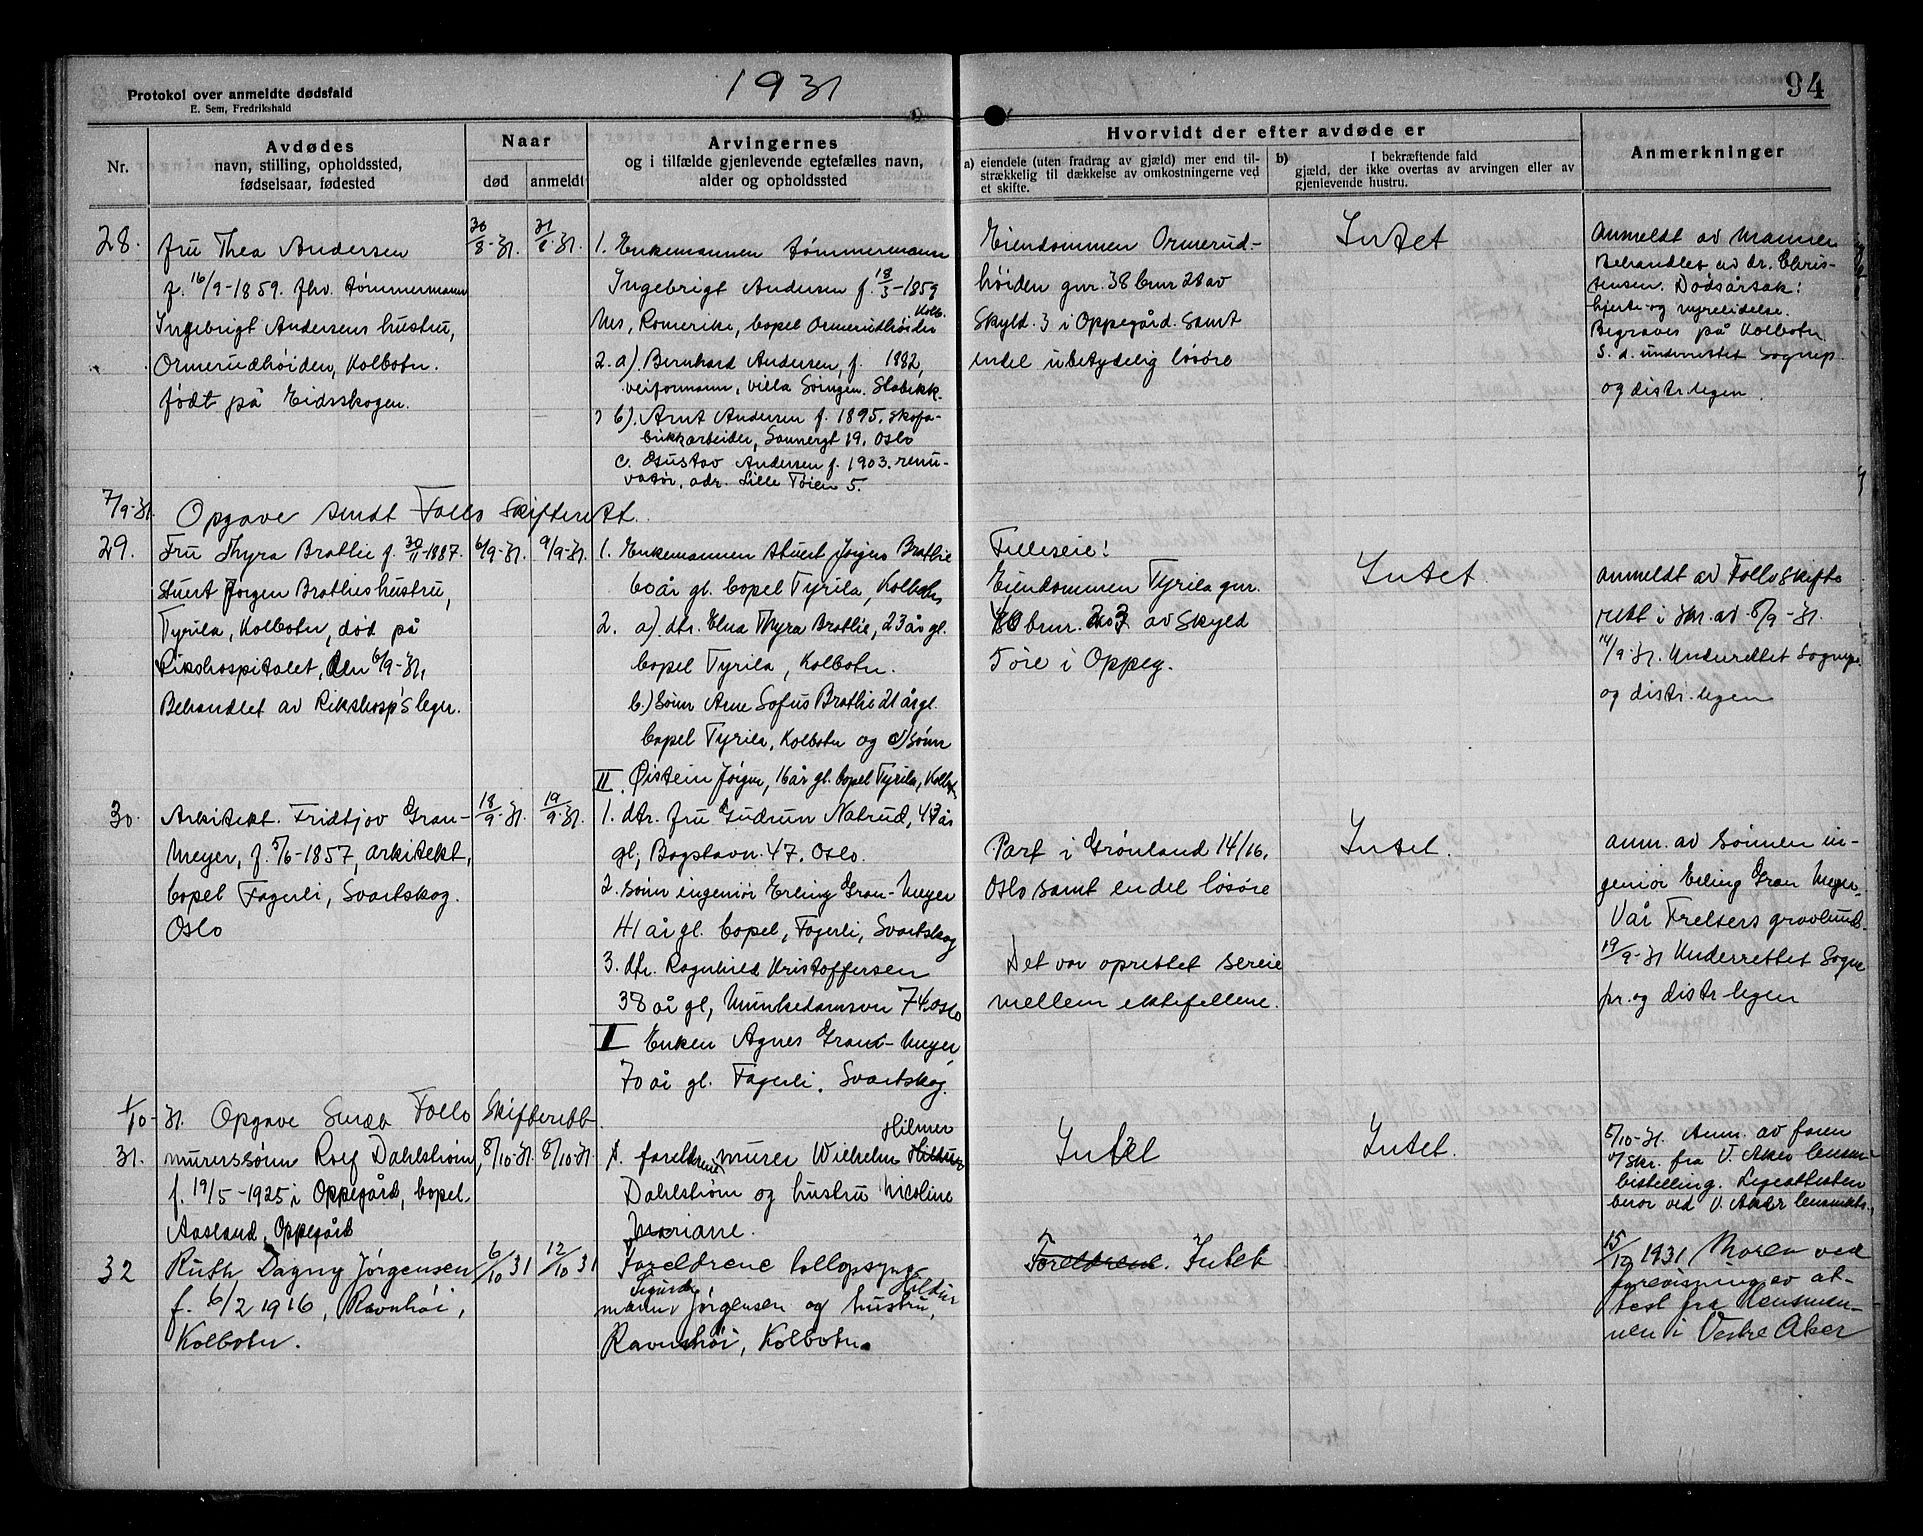 1931
94
Protokol over anmeldte dødsfald
E. Sem, Fredrikshald
Nr.
Avdødes
navn, stilling, opholdssted,
fødselsaar, fødested
Naar
død
anmeldt
Arvingernes
og i tilfælde gjenlevende egtefælles navn,
alder og opholdssted
Hvorvidt der efter avdøde er
a) eiendele (uten fradrag av gjæld) mer end til-
strækkelig til dækkelse av omkostningerne ved
et skifte.
b) I bekræftende fald
gjæld, der ikke overtas av arvingen eller av
gjenlevende hustru.
Anmerkninger
28.
Fru Thea Andersen
f. 16/9-1859. fhv. tømmermann
Ingebrigt Andersens hustru,
Ormerudhøiden, Kolbotn.
født på Eidsskogen.
30/8-31.
31/8-31.
1. Enkemannen tømmermann
Ingebrigt Andersen f. 18/3-1859
Nes, Romerike, bopel Ormerudhøiden Kolb.
2. a) Bernhard Andersen, f. 1882,
veiformann, villa Slabekk.
b). Arnt Andersen f. 1895. skofa-
brikkarbeider, Sannergt 19. Oslo
c. Gustav Andersen f. 1903. renn-
vatør, adr. Lille Tøien 5.
Eiendommen Ormerud-
høiden gnr. 38 bnr 28 av
Skyld. 3 i Oppegård. samt
endel ubetydelig løsøre
Intet
Anmeldt av mannen
Behandlet av dr. Chris-
tensen. Dødsårsak:
hjerte- og nyrelidelse.
Begraves på Kolbotn
S. d. underrettet Sognepr.
og distr. legen.
7/9-31. Opgave sendt Follo Skifterett.
29.
Fru Thyra Bratlie f. 30/11-1887.
Stuert Jørgen Bratlies hustru,
Tyrila, Kolbotn, død på
Rikshospitalet, den 6/9-31,
Behandlet av Rikshosp's leger.
6/9-31.
9/9-31.
1. Enkemannen stuert Jørgen Bratlie
60 år gl. bopel Tyrila, Kolbotn
2. a) dtr. Elna Thyra Bratlie, 23 år gl.
bopel Tyrila, Kolbotn.
b.) Sønn Arne Sofus Bratlie 21 år gl.
bopel Tyrila, Kolbotn og c) sønn
Øistein Jørgen, 16 år gl. bopel Tyrila, Kolbotn
Felleseie!
Eiendommen Tyrila gnr.
bnr. av Skyld
1 øre i Oppeg.
Intet.
Anmeldt av Follo Skifte
rett i skr. av 8/9-31.
14/9-31. Underrettet Sognepr.
og distr. legen
30.
Arkitekt. Fridtjov Gran-
Meyer, f. 5/6-1857, arkitekt,
bopel Fagerli, Svartskog.
Oslo
18/9-31.
19/9-31.
II
1. dtr. fru Gudrun Natrud, 47 år
gl, Bogstavn. 47. Oslo.
2. sønn ingeniør Erling Gran-Meyer
41 år gl. bopel, Fagerli, Svartskog
3. dtr. Ragnhild Kristoffersen
38 år gl, Munkedamsvn 74. Oslo
I Enken Agnes Gran-Meyer,
70 år gl. Fagerli. Svartskog.
Part i Grønland 14/16.
Oslo samt en del løsøre
Det var oprettet særeie
mellem ektefellene.
Intet.
anm. av sønnen in-
geniør Erling Gran Meyer.
Vår Frelsers gravlund.
19/9-31 Underrettet Sogne
pr. og distr. legen
1/10-31. Opgave Sendt Follo Skifterett.
31.
murerssønn Rolf Dahlstrøm,
f. 19/5-1925 i Oppegård, bopel.
Aasland, Oppegård
8/10-31.
8/10-31
1. foreldrene murer Wilhelm Hilmer
Dahlstrøm og hustru Nicoline
Mariane.
Intet
Intet.
8/10-31. Anm. av faren
m/skr. fra V. Aker lensm-
bestilling. Legeattesten
beror ved V. Aker lensmkt.
32
Ruth Dagny Jørgensen
f. 6/2 1916, Ravnhøi,
Kolbotn.
6/10 31
12/10 31
Foreldrene
mann Sigurd Jørgensen og hustru,
Ravnhøi, Kolbotn.
Foreldrene. Intet
15/10 1931 Moren ved
forevisning av at-
test fra lensmen-
nen i Vestre Aker